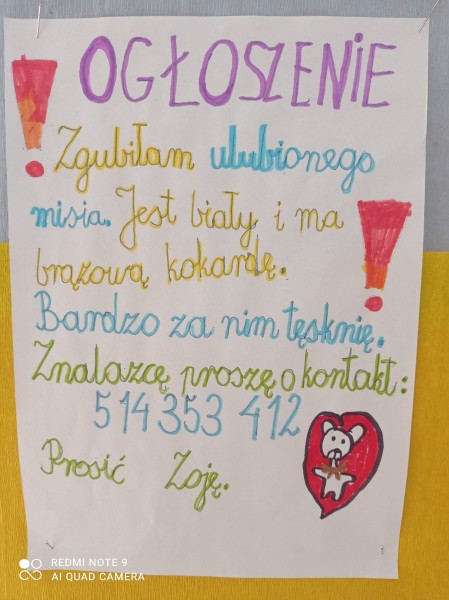 OGŁOSZENIE
Zgubiłam ulubionego
misia. Jest biały i ma
brązową kokardę.
Bardzo za nim tęsknię.
Znalazcę proszę o kontakt:
514 353 412
Prosić Zoję.
REDMI NOTE 9
AI QUAD CAMERA